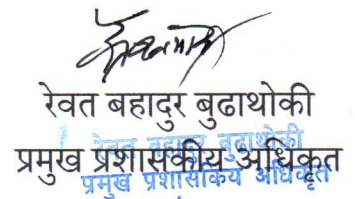 रेवत बहादुर बुढाथोकी
रेवत बहादुर बुढाथोकी
प्रमुख प्रशासकीय अधिकृत
प्रमुख प्रशासकिय अधिकृत